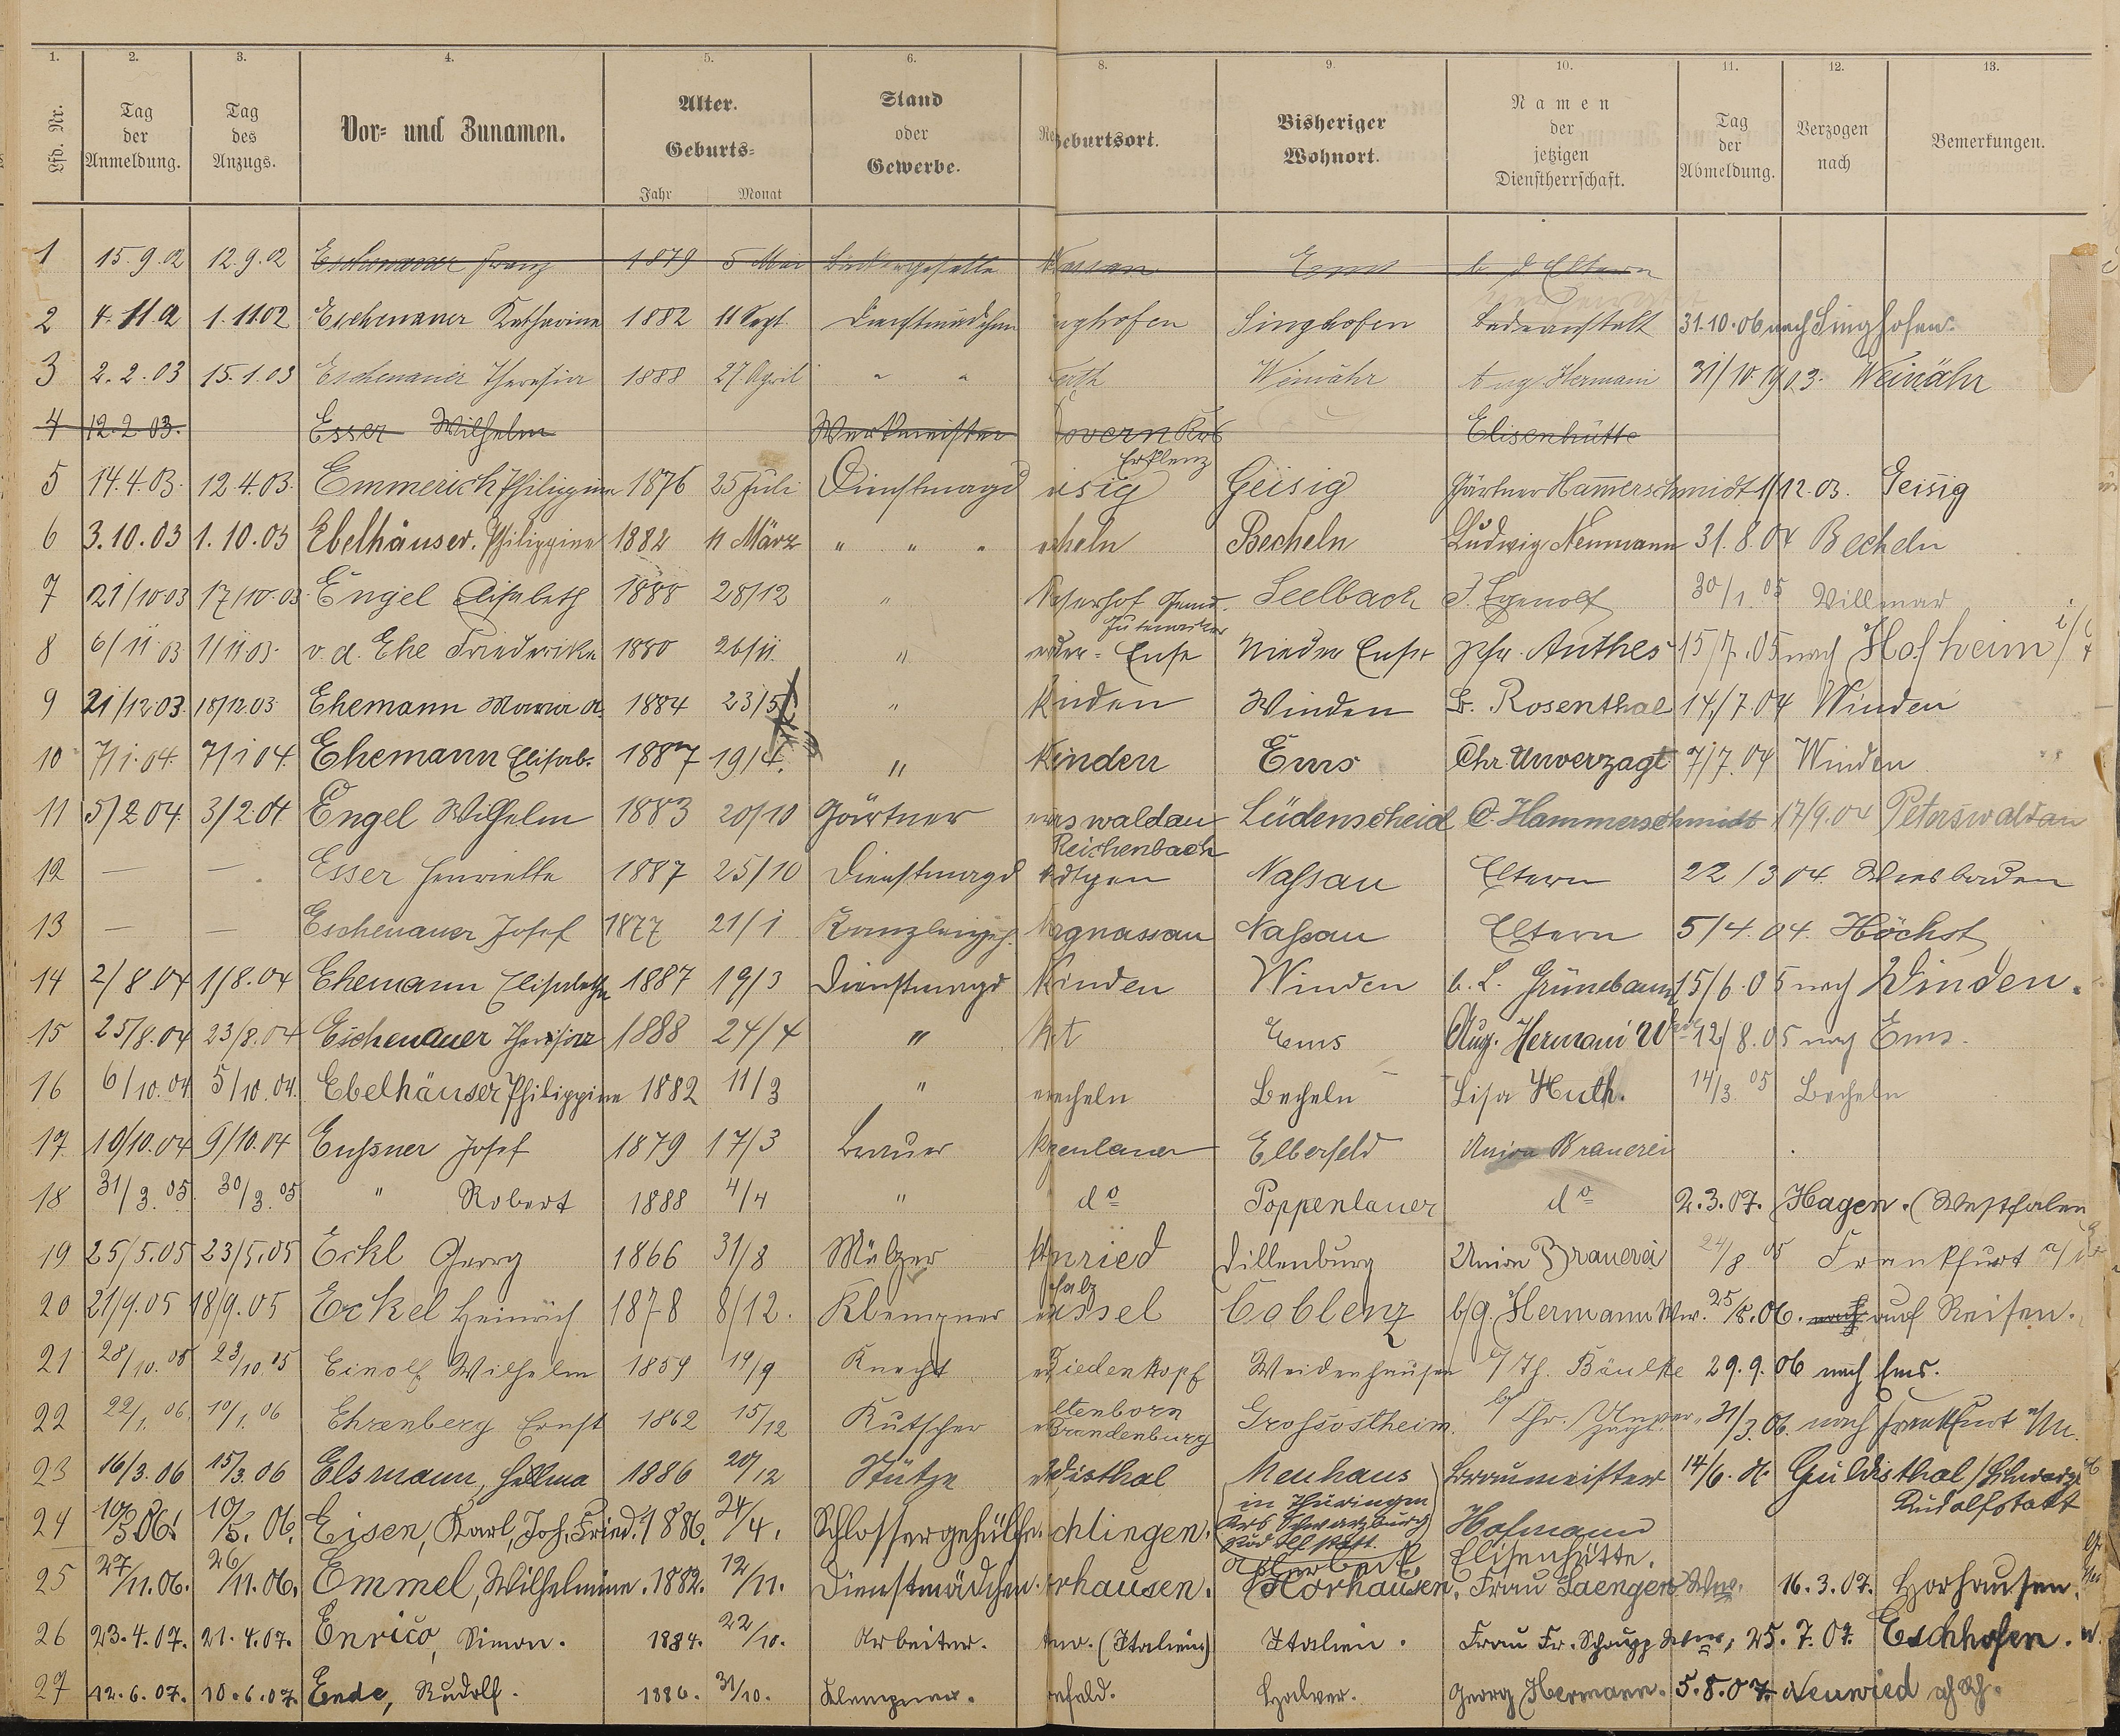 1. 2. 3. 4. 5. 6. 8. 9. 10. 11. 12. 13.
Lfd. Nr. Tag der Anmeldung. Tag des Anzugs. Vor= und Zunamen. Alter. Geburts= Jahr Monat Stand oder Gewerbe. Re Geburtsort. Bisheriger Wohnort. Namen der jetzigen Dienstherrschaft. Tag der Abmeldung. Verzogen nach Bemerkungen.
1 15.9.02 12.9.02 Eschenauer Franz 1879 5 Mai Bäckergeselle Nassau Ems b. d. Eltern
2 4.11.02 1.11.02 Eschenauer Katharina 1882 11 Sept. Dienstmädchen nghofen Singhofen Badeanstalt 31.10.06 nach Singhofen.
3 2.2.03 15.1.03 Eschenauer Theresia 1888 27 April " " Weinähr Aug. Hermani 31/10.1903. Weinähr
4 12.2.03. Esser Wilhelm Werkmeister overn Krs Erklenz Elisenhütte
5 14.4.03. 12.4.03. Emmerich Philippine 1876 25 Juli Dienstmagd isig Geisig Gärtner Hamerschmidt 1/12.03. Geisig
6 3.10.03 1.10.03 Ebelhäuser. Philippine 1882 11 März " " " cheln Becheln Ludwig Neumann 31.8.04 Becheln
7 21/10 03 17/10.03 Engel Elisabeth 1888 28/12 " Seelbach J. Egenolf 30/1.05 Villmar
8 6/11 03 1/11 03. v. d. Ehe Friederike 1880 26/11. " eder-Ense Nieder Ense Anthes 15/7.05 nach Hofheim
9 21/12.03. 18/12.03 Ehemann Maria A. 1884 23/5 " inden Winden S. Rosenthal 14/7.04 Winden
10 7/1.04. 7/1 04. Ehemann Elisab. 1887 19/4. " inden Ems Chr. Unverzagt 7/7.04 Winden
11 5/2 04. 3/2.04 Engel Wilhelm 1883 20/10 Gärtner waldau Reichenbach Lüdenscheid C. Hammerschmidt 17/9.04 Peterswaldau
12 — — Esser Henriette 1887 25/10 Dienstmagd Nassau Eltern 22/3 04. Wiesbaden
13 — — Eschenauer Josef 1877 21/1 Kanzleigeh. gnassau Nassau Eltern 5/4.04. Höchst
14 2/8.04 1/8.04 Ehemann Elisabetha 1887 19/3 Dienstmagd inden Winden b. L. Grünebaum 15/6.05 nach Winden.
15 25/8.04 23/8.04 Eschenauer Theresia 1888 24/4 " Ems Aug. Hermani Wwe 12/8.05 nach Ems.
16 6/10.04 5/10.04. Ebelhäuser Philippine 1882 11/3 " echeln Becheln Lisa Huth. 14/3.05 Becheln
17 10/10.04 9/10.04 Eußner Josef 1879 17/3 Brauer penlauer Elberfeld Union Brauerei
18 31/3.05. 30/3.05 " Robert 1888 4/4 " do Poppenlauer do 2.3.07. Hagen. (Westfalen
19 25/5.05 23/5.05 Eckl Georg 1866 31/8 Mälzer nried Pfalz Dillenburg Union Brauerei 24/8 05 Frankfurt a/M
20 21/9.05 18/9.05 Eckel Heinrich 1878 8/12. Klempner assel Coblenz b/G. Hermann Ww. 25/8.06. nach auf Reisen.
21 28/10.05 23/10.05 Einolf Wilhelm 1859 14/9 Knecht Biedenkopf Weidenhausen b/ Th. Bäulke 29.9.06 nach Ems.
22 22/1.06. 10/1.06 Ehrenberg Ernst 1862 15/12 Kutscher ltenborn Brandenburg Grossostheim. b/ Chr. Unverzagt. 31/3.06. nach Frankfurt a/M.
23 16/3.06 15/3.06 Elsmann, Hellma 1886 20/12 Stütze disthal Neuhaus in Thüringen Krs Schwarzburg Rudolfstatt Braumeister Hofmann 14/6.06. Guldisthal / Schwarzb. Rudolfstatt
24 10/5 06. 10/5. 06. Eisen, Karl, Joh. Fried. 1886. 24/4. Schlossergehülfe. chlingen. Elisenhütte.
25 27/11.06. 26/11.06. Emmel, Wilhelmine. 1882. 12/11. Dienstmädchen. rhausen. Horhausen. Frau Saenger Ww. 16.3.07. Horhausen.
26 23.4.07. 21.4.07. Enrico, Simon. 1884. 22/10. Arbeiter. (Italien) Italien. Frau Fr. Schaupp Wwe, 25.7.07. Eschhofen.
27 12.6.07. 10.6.07. Ende, Rudolf. 1886. 31/10. Klempner. efeld. Halver. Georg Hermann. 5.8.07. Neuwied